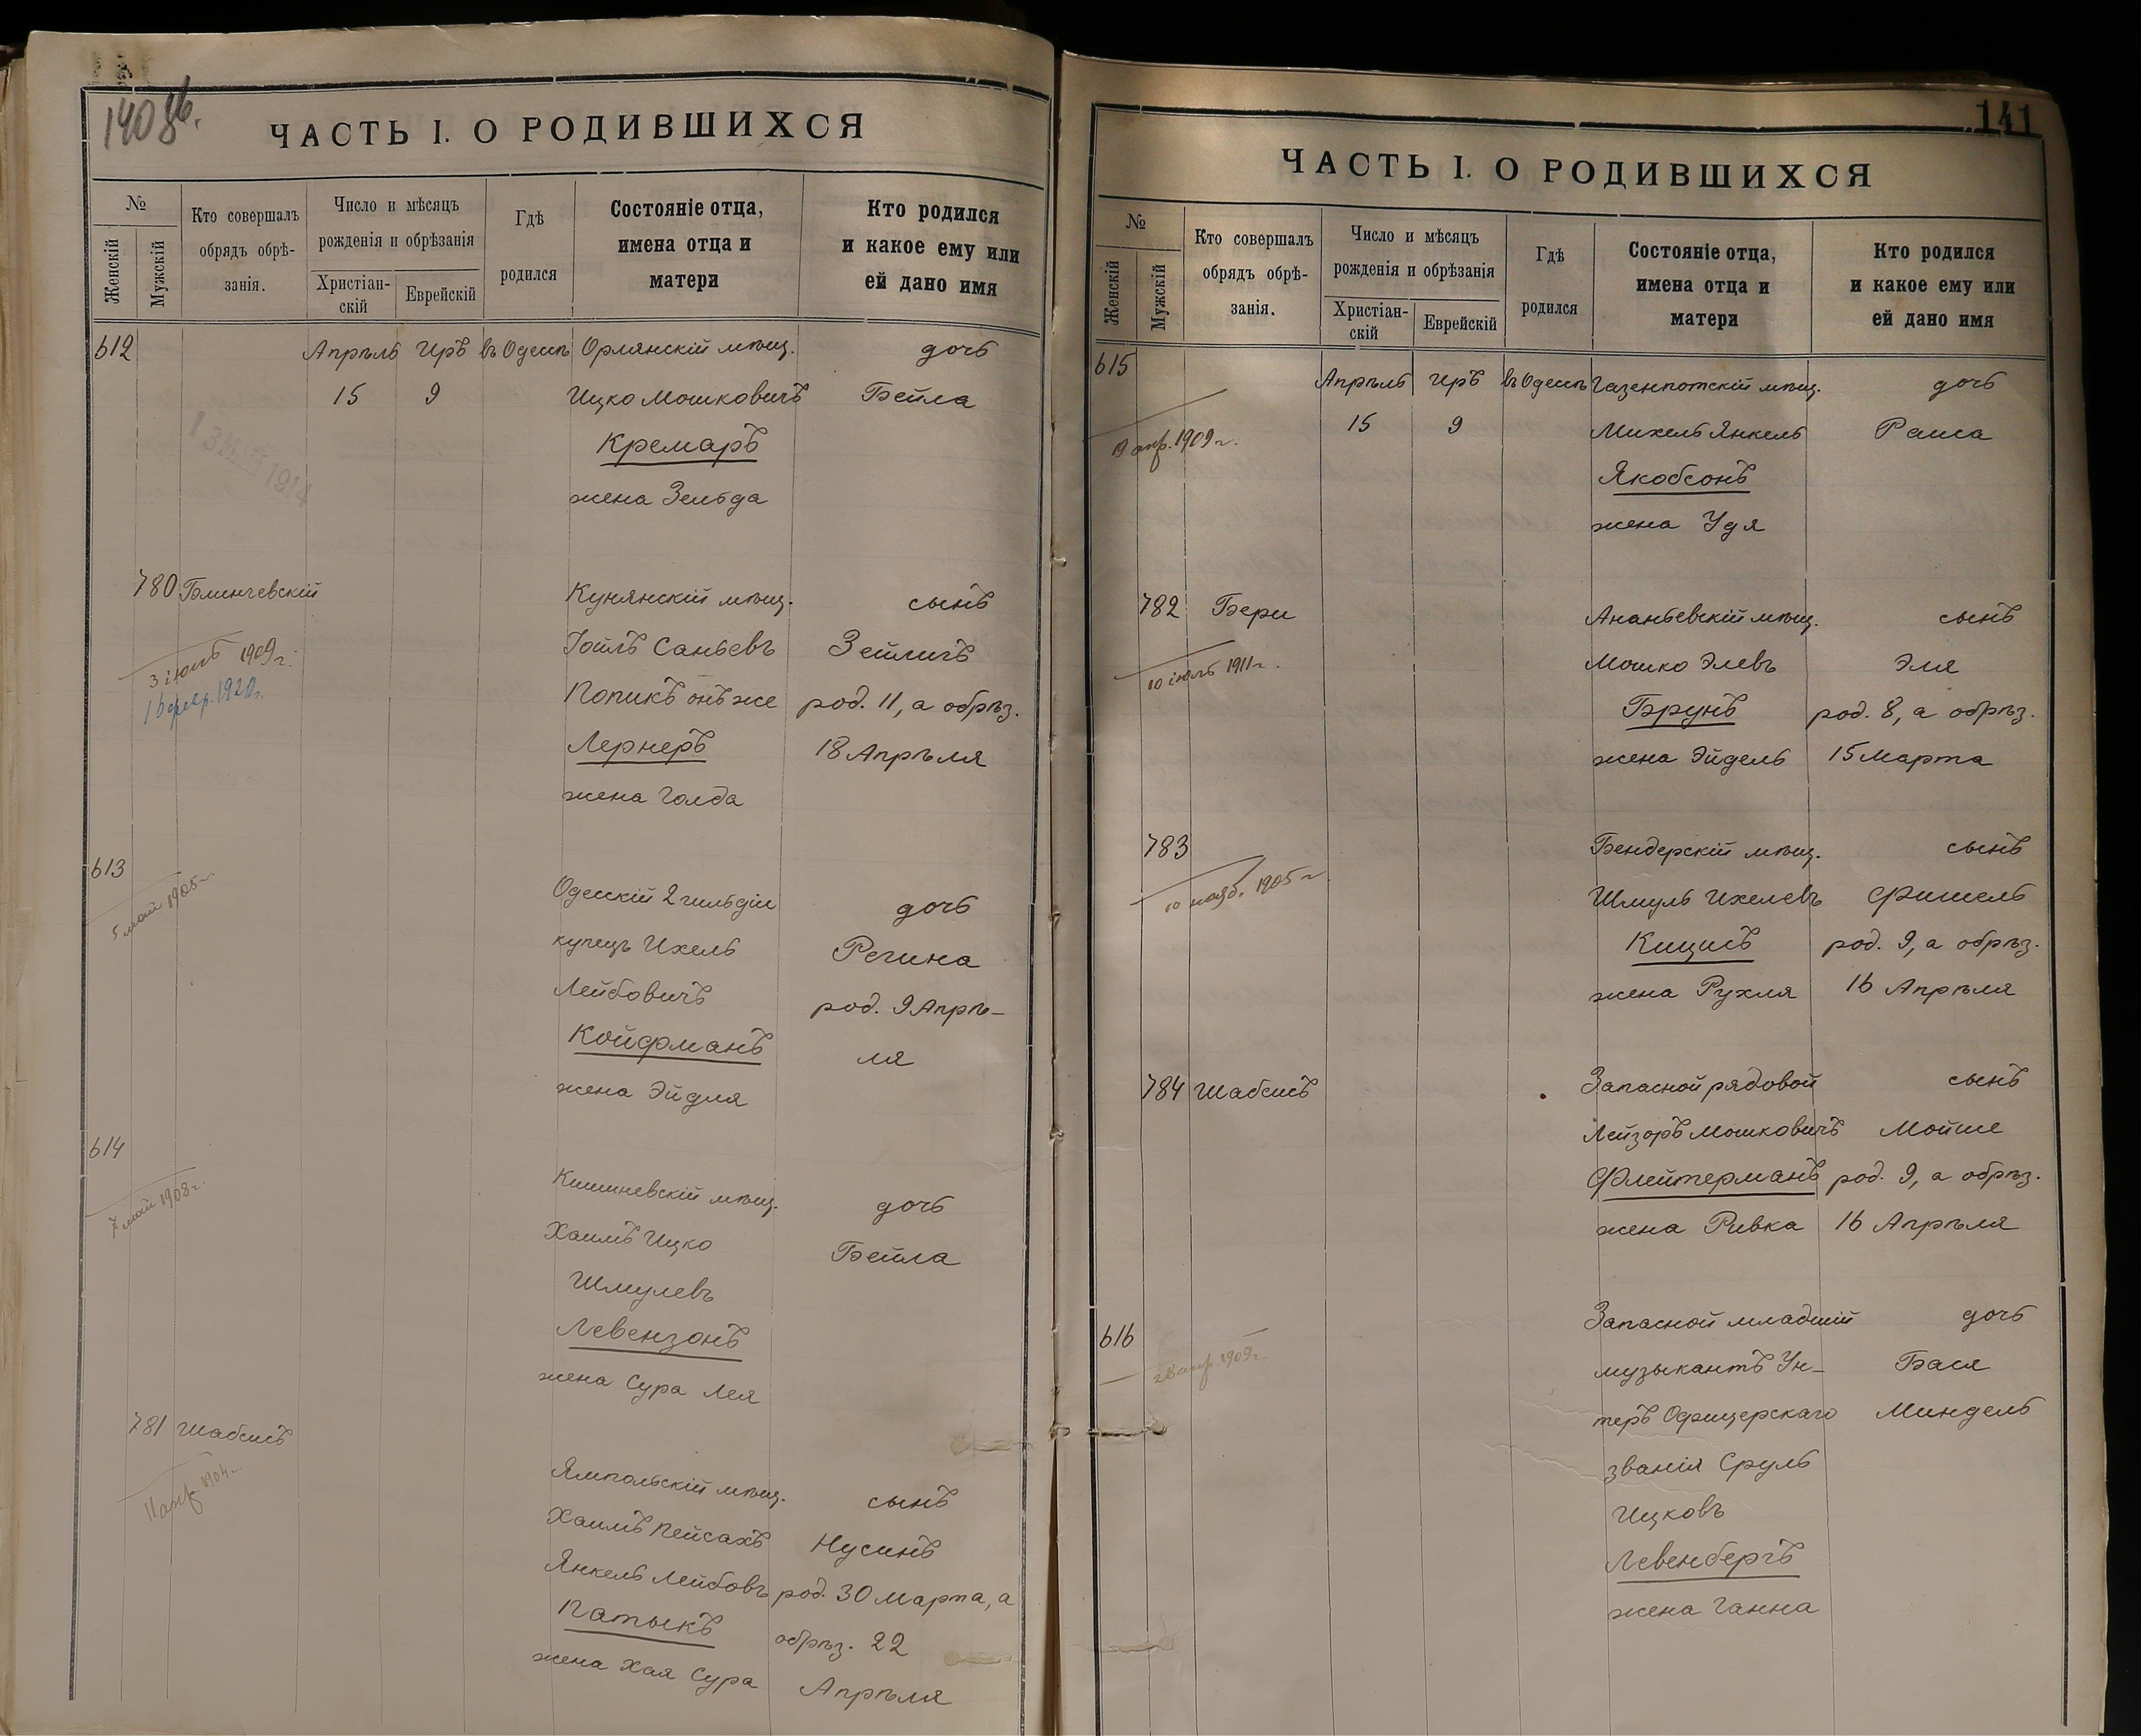 140 об.
ЧАСТЬ I. О РОДИВШИХСЯ
№
Женскій
Мужскій
Кто совершалъ
обрядъ обрѣ-
занія.
Число и мѣсяцъ
рожденія и обрѣзанія
Христіан-
скій
Еврейскій
Гдѣ
родился
Состояніе отца,
имена отца и
матери
Кто родился
и какое ему или
ей дано имя
612 Апрѣль Иръ въ Одессѣ Орлянскій мѣщ. дочь
15 9 Ицко Мошковичъ Бейла
Кремаръ
1914
жена Зельда
780 Блинчевскій Кунянскій мѣщ. сынъ
3 іюль 1909 г. Іойлъ Саньевъ Зейлигъ
1920 г. Попикъ онъ же род. 11, а обрѣз.
Лернеръ 18 Апрѣля
жена Голда
613
5 май 1905 г. Одесскій 2 гильдіи дочь
купецъ Ихель Регина
Лейбовичъ род. 9 Апрѣ-
Койфманъ ля
жена Эйдля
614
7 май 1908 г. Кишиневскій мѣщ. дочь
Хаимъ Ицко Бейла
Шмулевъ
Левензонъ
жена Сура Лея
781 Шабсисъ
11 апр. 1904 г. Ямпольскій мѣщ. сынъ
Хаимъ Пейсахъ Нусинъ
Янкель Лейбовъ род. 30 Марта, а
Патыкъ обрѣз. 22
жена Хая Сура Апрѣля
141
ЧАСТЬ I. О РОДИВШИХСЯ
№
Женскій
Мужскій
Кто совершалъ
обрядъ обрѣ-
занія.
Число и мѣсяцъ
рожденія и обрѣзанія
Христіан-
скій
Еврейскій
Гдѣ
родился
Состояніе отца,
имена отца и
матери
Кто родился
и какое ему или
ей дано имя
615 Апрѣль Иръ въ Одессѣ Газенпотскій мѣщ. дочь
апр. 1909 г. 15 9 Михель Янкель Раиса
Якобсонъ
жена Удя
782 Бери Ананьевскій мѣщ. сынъ
10 іюль 1911 г. Мошко Элевъ Эля
Брунъ род. 8, а обрѣз.
жена Эйдель 15 Марта
783 Бендерскій мѣщ. сынъ
10 нояб. 1905 г. Шмуль Ихелевъ Фишель
Кицисъ род. 9, а обрѣз.
жена Рухля 16 Апрѣля
784 Шабсисъ Запасной рядовой сынъ
Лейзоръ Мошковичъ Мойше
Флейтерманъ род. 9, а обрѣз.
жена Ривка 16 Апрѣля
616 Запасной младшій дочь
28 апр. 1909 г. музыкантъ Ун- Бася
теръ Офицерскаго Миндель
званія Сруль
Ицковъ
Левенбергъ
жена Ганна